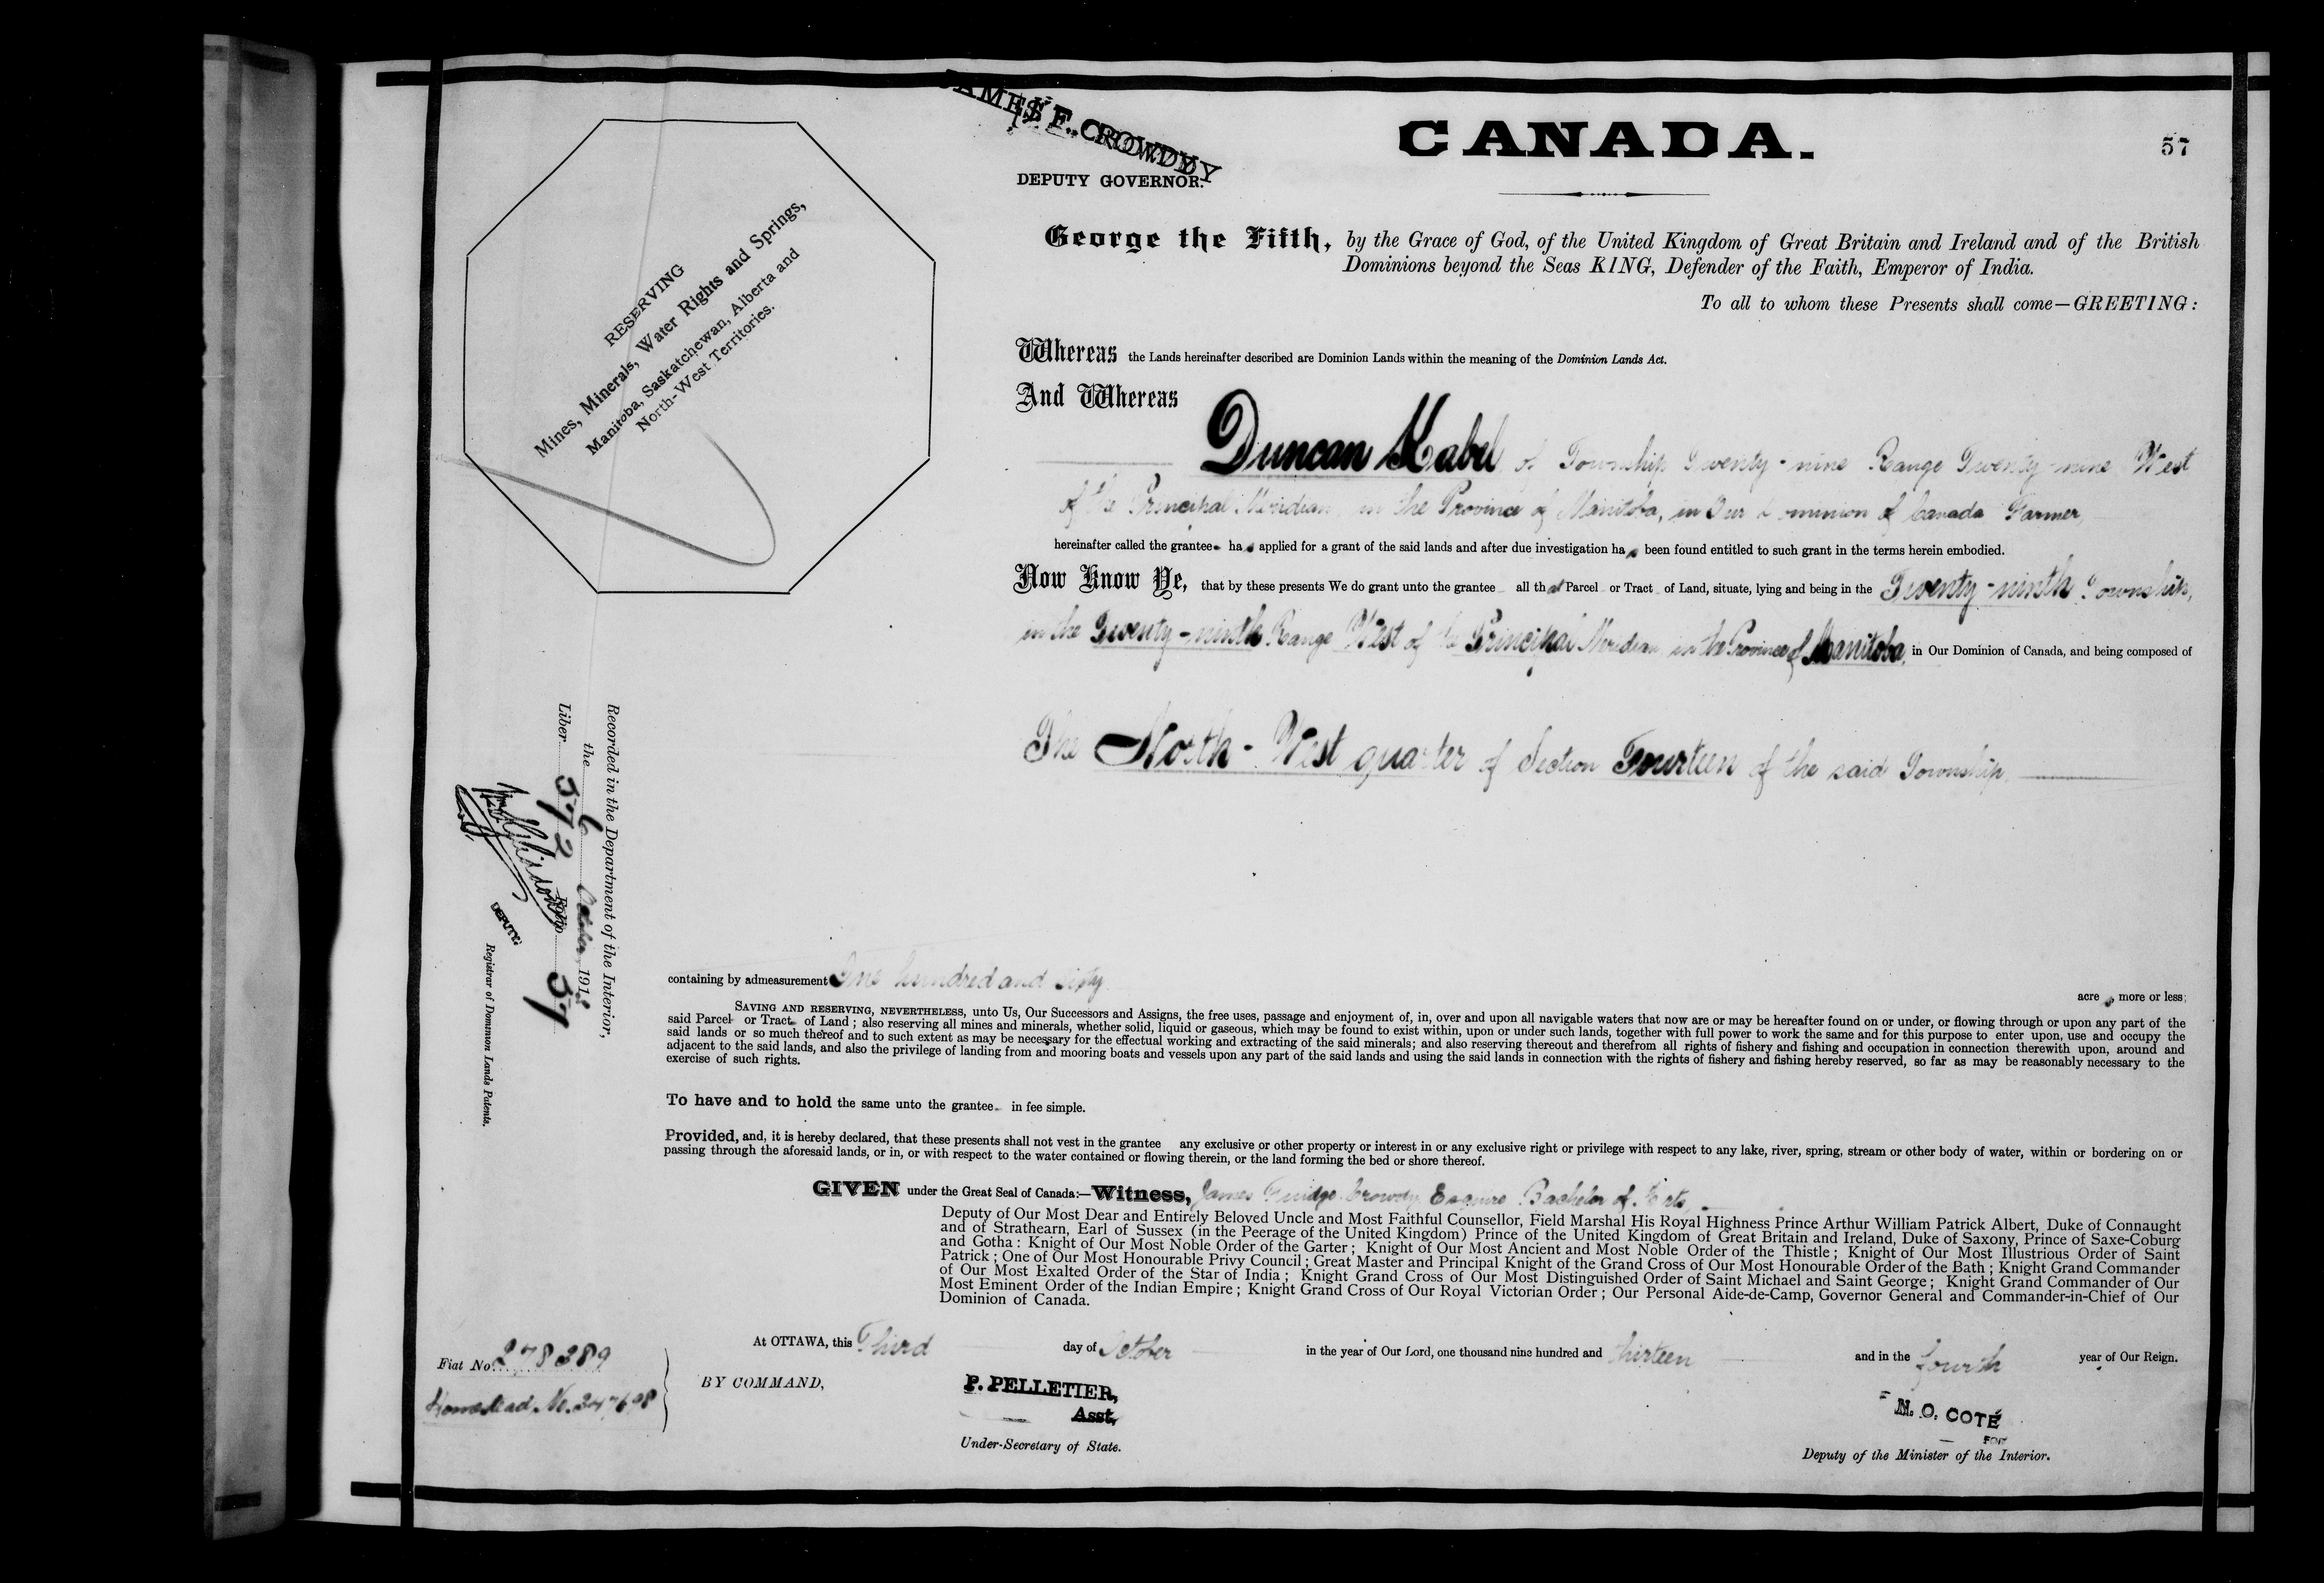 JAMES F. CROWDY
DEPUTY GOVERNOR.
CANADA.
57
RESERVING
Mines, Minerals, Water Rights and Springs,
Manitoba, Saskatchewan, Alberta and
North-West Territories.
George the Fifth, by the Grace of God, of the United Kingdom of Great Britain and Ireland and of the British
Dominions beyond the Seas KING, Defender of the Faith, Emperor of India.
To all to whom these Presents shall come—GREETING:
Whereas the Lands hereinafter described are Dominion Lands within the meaning of the Dominion Lands Act.
And Whereas
Duncan Kabel of Township Twenty-nine Range Twenty-nine West
of the Principal Meridian, in the Province of Manitoba, in Our Dominion of Canada Farmer,
hereinafter called the grantee has applied for a grant of the said lands and after due investigation has been found entitled to such grant in the terms herein embodied.
Now Know Ye, that by these presents We do grant unto the grantee all that Parcel or Tract of Land, situate, lying and being in the Twenty-ninth Township,
in the Twenty-ninth Range West of the Principal Meridian in the Province of Manitoba, in Our Dominion of Canada, and being composed of
The North-West quarter of Section Fourteen of the said Township
Recorded in the Department of the Interior,
the 6 October 191
Liber 572 Folio 57
DEPUTY
Registrar of Dominion Lands Patents.
containing by admeasurement One hundred and sixty
acres, more or less;
SAVING AND RESERVING, NEVERTHELESS, unto Us, Our Successors and Assigns, the free uses, passage and enjoyment of, in, over and upon all navigable waters that now are or may be hereafter found on or under, or flowing through or upon any part of the
said Parcel or Tract of Land; also reserving all mines and minerals, whether solid, liquid or gaseous, which may be found to exist within, upon or under such lands, together with full power to work the same and for this purpose to enter upon, use and occupy the
said lands or so much thereof and to such extent as may be necessary for the effectual working and extracting of the said minerals; and also reserving thereout and therefrom all rights of fishery and fishing and occupation in connection therewith upon, around and
adjacent to the said lands, and also the privilege of landing from and mooring boats and vessels upon any part of the said lands and using the said lands in connection with the rights of fishery and fishing hereby reserved, so far as may be reasonably necessary to the
exercise of such rights.
To have and to hold the same unto the grantee in fee simple.
Provided, and, it is hereby declared, that these presents shall not vest in the grantee any exclusive or other property or interest in or any exclusive right or privilege with respect to any lake, river, spring, stream or other body of water, within or bordering on or
passing through the aforesaid lands, or in, or with respect to the water contained or flowing therein, or the land forming the bed or shore thereof.
GIVEN under the Great Seal of Canada:—Witness, James Fuidge Crowdy, Esquire Bachelor of Arts,
Deputy of Our Most Dear and Entirely Beloved Uncle and Most Faithful Counsellor, Field Marshal His Royal Highness Prince Arthur William Patrick Albert, Duke of Connaught
and of Strathearn, Earl of Sussex (in the Peerage of the United Kingdom) Prince of the United Kingdom of Great Britain and Ireland, Duke of Saxony, Prince of Saxe-Coburg
and Gotha: Knight of Our Most Noble Order of the Garter; Knight of Our Most Ancient and Most Noble Order of the Thistle; Knight of Our Most Illustrious Order of Saint
Patrick; One of Our Most Honourable Privy Council; Great Master and Principal Knight of the Grand Cross of Our Most Honourable Order of the Bath; Knight Grand Commander
of Our Most Exalted Order of the Star of India; Knight Grand Cross of Our Most Distinguished Order of Saint Michael and Saint George; Knight Grand Commander of Our
Most Eminent Order of the Indian Empire; Knight Grand Cross of Our Royal Victorian Order; Our Personal Aide-de-Camp, Governor General and Commander-in-Chief of Our
Dominion of Canada.
At OTTAWA, this Third day of October in the year of Our Lord, one thousand nine hundred and thirteen and in the fourth year of Our Reign.
Fiat No. 278289
Homestead No. 247698
BY COMMAND,
P. PELLETIER,
Asst.
Under-Secretary of State.
N. O. COTÉ
FOR
Deputy of the Minister of the Interior.